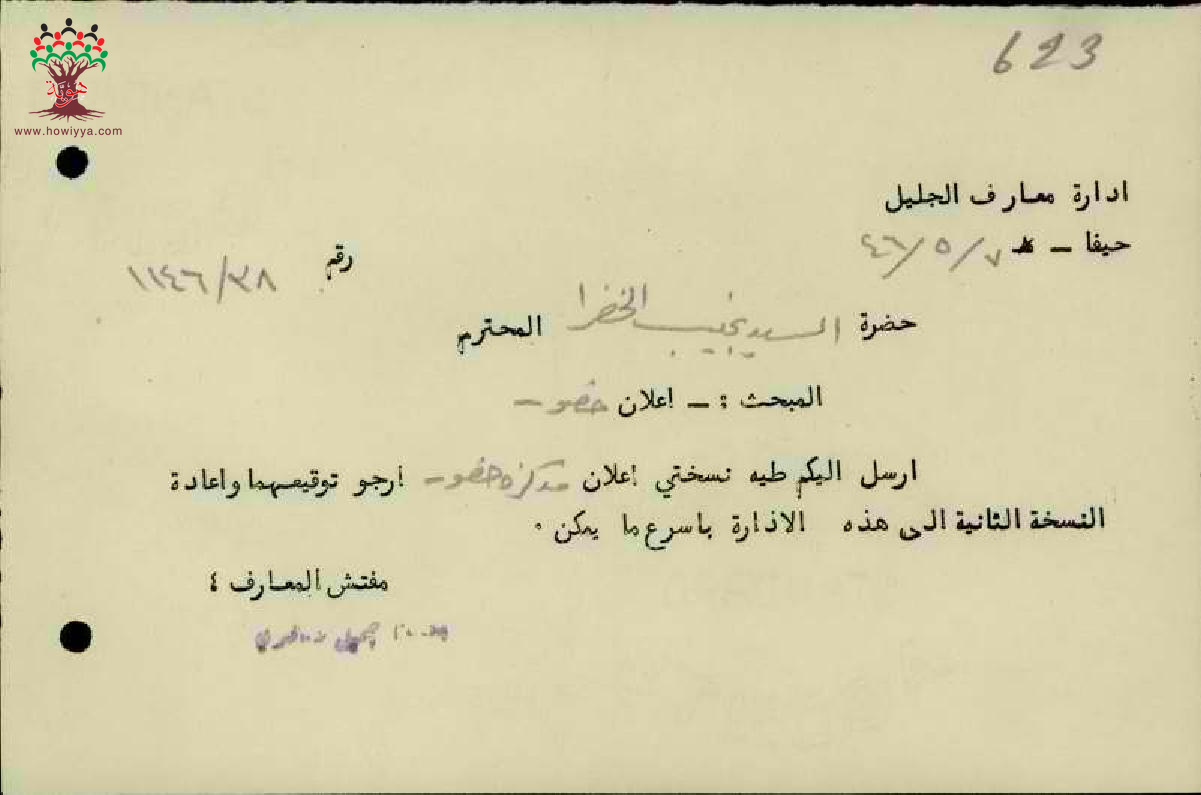 623
هوية
www.howiyya.com
ادارة معارف الجليل
حيفا - ٤٦/٥/٧
رقم ١١٤٦/٣٨
حضرة السيد نجيب الخضرا المحترم
المبحث :- اعلان حضور
ارسل اليكم طيه نسختي اعلان مذكرة حضور أرجو توقيعهما واعادة
النسخة الثانية الى هذه الادارة باسرع ما يمكن .
مفتش المعارف ؛